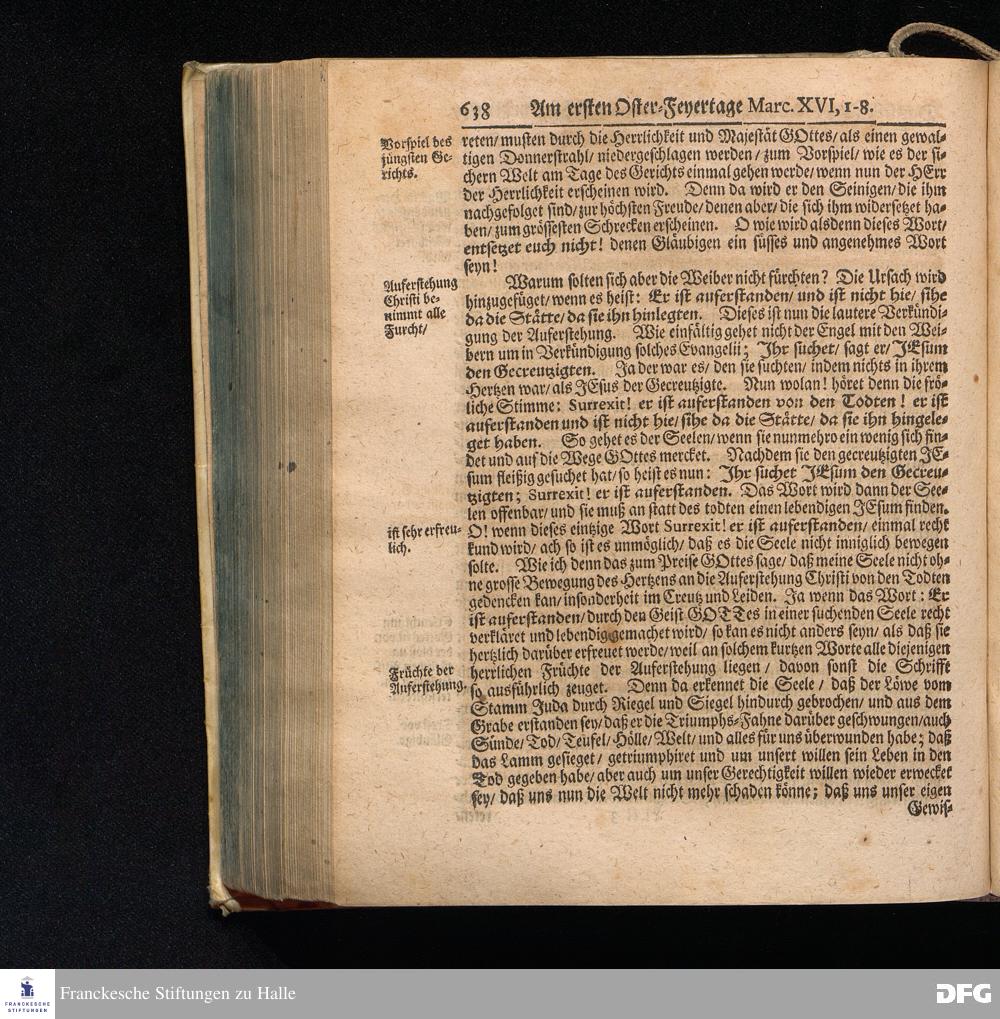 638 Am ersten Oster-Feyertage Marc. XVI, 1-8.
Vorspiel des
jüngsten Ge-
richts.
reten/ musten durch die Herrlichkeit und Majestät GOttes/ als einen gewal-
tigen Donnerstrahl/ niedergeschlagen werden/ zum Vorspiel/ wie es der si-
chern Welt am Tage des Gerichts einmal gehen werde/ wenn nun der HErr
der Herrlichkeit erscheinen wird. Denn da wird er den Seinigen/ die ihm
nachgefolget sind/ zur höchsten Freude/ denen aber/ die sich ihm widersetzet ha-
ben/ zum grössesten Schrecken erscheinen. O wie wird alsdenn dieses Wort/
entsetzet euch nicht! denen Gläubigen ein süsses und angenehmes Wort
seyn!
Auferstehung
Christi be-
nimmt alle
Furcht/
Warum solten sich aber die Weiber nicht fürchten? Die Ursach wird
hinzugefüget/ wenn es heist: Er ist auferstanden/ und ist nicht hie/ sihe
da die Stätte/ da sie ihn hinlegten. Dieses ist nun die lautere Verkündi-
gung der Auferstehung. Wie einfältig gehet nicht der Engel mit den Wei-
bern um in Verkündigung solches Evangelii; Ihr suchet/ sagt er/ JEsum
den Gecreutzigten. Ja der war es/ den sie suchten/ indem nichts in ihrem
Hertzen war/ als JEsus der Gecreutzigte. Nun wolan! höret denn die frö-
liche Stimme: Surrexit! er ist auferstanden von den Todten! er ist
auferstanden und ist nicht hie/ sihe da die Stätte/ da sie ihn hingele-
get haben. So gehet es der Seelen/ wenn sie nunmehro ein wenig sich fin-
det und auf die Wege GOttes mercket. Nachdem sie den gecreutzigten JE-
sum fleißig gesuchet hat/ so heist es nun: Ihr suchet JEsum den Gecreu-
tzigten; Surrexit! er ist auferstanden. Das Wort wird dann der See-
len offenbar/ und sie muß an statt des todten einen lebendigen JEsum finden.
ist sehr erfreu-
lich.
O! wenn dieses eintzige Wort Surrexit! er ist auferstanden/ einmal recht
kund wird/ ach so ist es unmöglich/ daß es die Seele nicht inniglich bewegen
solte. Wie ich denn das zum Preise GOttes sage/ daß meine Seele nicht oh-
ne grosse Bewegung des Hertzens an die Auferstehung Christi von den Todten
gedencken kan/ insonderheit im Creutz und Leiden. Ja wenn das Wort: Er
ist auferstanden/ durch den Geist GOTTes in einer suchenden Seele recht
verkläret und lebendig gemachet wird/ so kan es nicht anders seyn/ als daß sie
hertzlich darüber erfreuet werde/ weil an solchem kurtzen Worte alle diejenigen
Früchte der
Auferstehung,
herrlichen Früchte der Auferstehung liegen/ davon sonst die Schrifft
so ausführlich zeuget. Denn da erkennet die Seele/ daß der Löwe vom
Stamm Juda durch Riegel und Siegel hindurch gebrochen/ und aus dem
Grabe erstanden sey/ daß er die Triumphs-Fahne darüber geschwungen/ auch
Sünde/ Tod/ Teufel/ Hölle/ Welt/ und alles für uns überwunden habe; daß
das Lamm gesieget/ getriumphiret und um unsert willen sein Leben in den
Tod gegeben habe/ aber auch um unser Gerechtigkeit willen wieder erwecket
sey/ daß uns nun die Welt nicht mehr schaden könne; daß uns unser eigen
Gewis-
FRANCKESCHE
STIFTUNGEN
Franckesche Stiftungen zu Halle
DFG